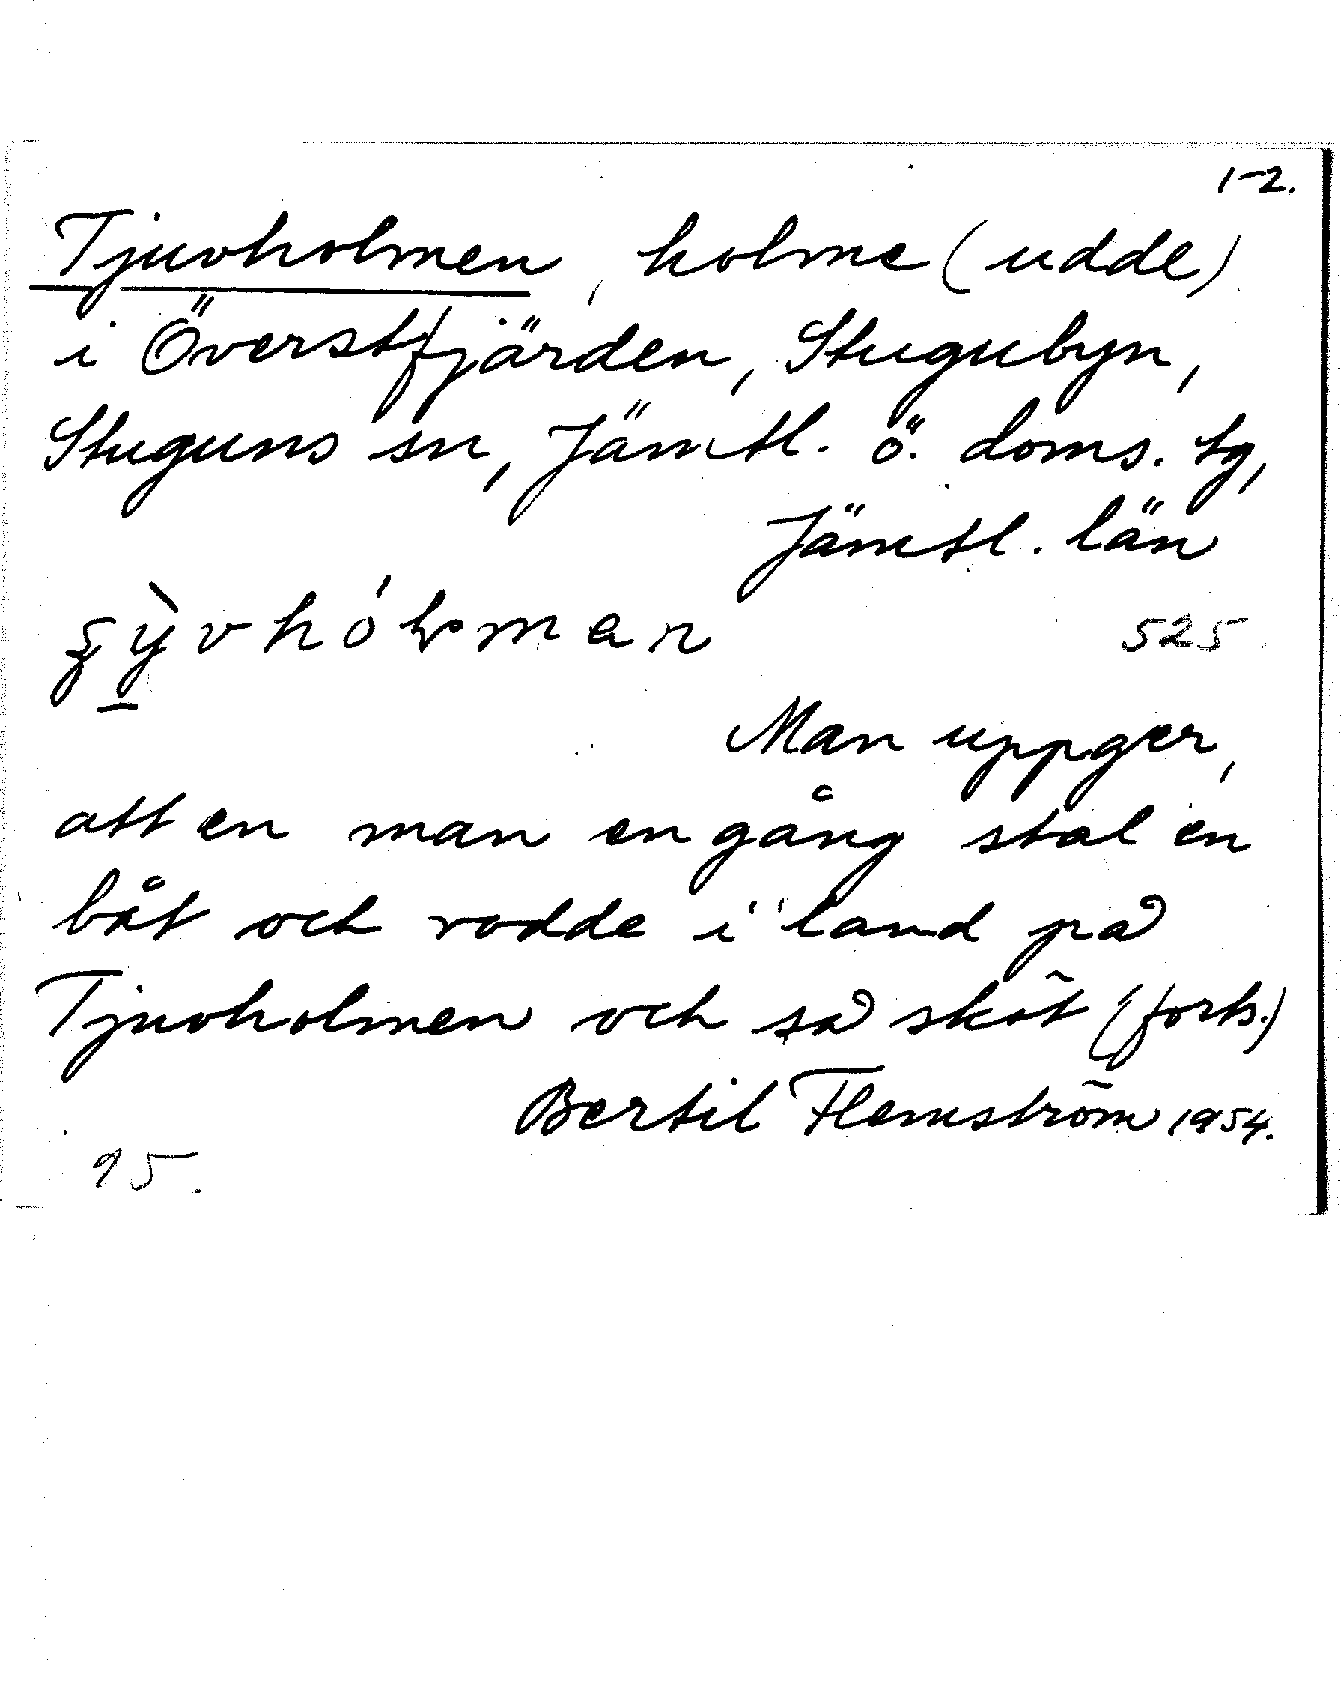 1-2.
Tjuvholmen, holme (udde)
i Överstfjärden, Stugubyn,
Stuguns sn, Jämtl. ö. doms. tg,
Jämtl. län
525
Man uppger,
att en man en gång stal en
båt och rodde i land på
Tjuvholmen och så sköt (forts.)
Bertil Flemström 1954.
95.